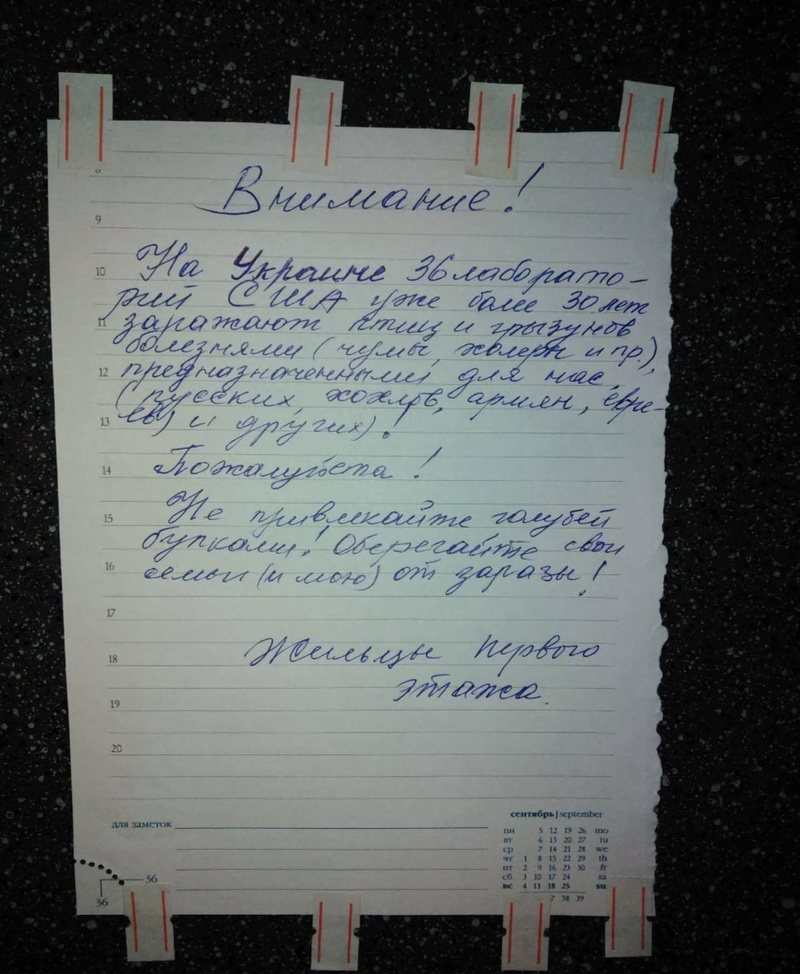 8
Внимание!
9
10 На Украине 36 лаборато-
рий США уже более 30 лет
11 заражают птиц и грызунов
болезнями (чумы, холеры и пр.),
12 предназначенными для нас
(русских, хохлов, армян, евре-
13 ев) и других)!
14 Пожалуйста!
15 Не привлекайте голубей
булками! Оберегайте свои
16 семьи (и мою) от заразы!
17
18 Жильцы первого
этажа.
19
20
для заметок
сентябрь | september
пн 5 12 19 26 mo
вт 6 13 20 27 tu
ср 7 14 21 28 we
чт 1 8 15 22 29 th
пт 2 9 16 23 30 fr
сб 3 10 17 24 sa
вс 4 11 18 25 su
7 38 39
36
36